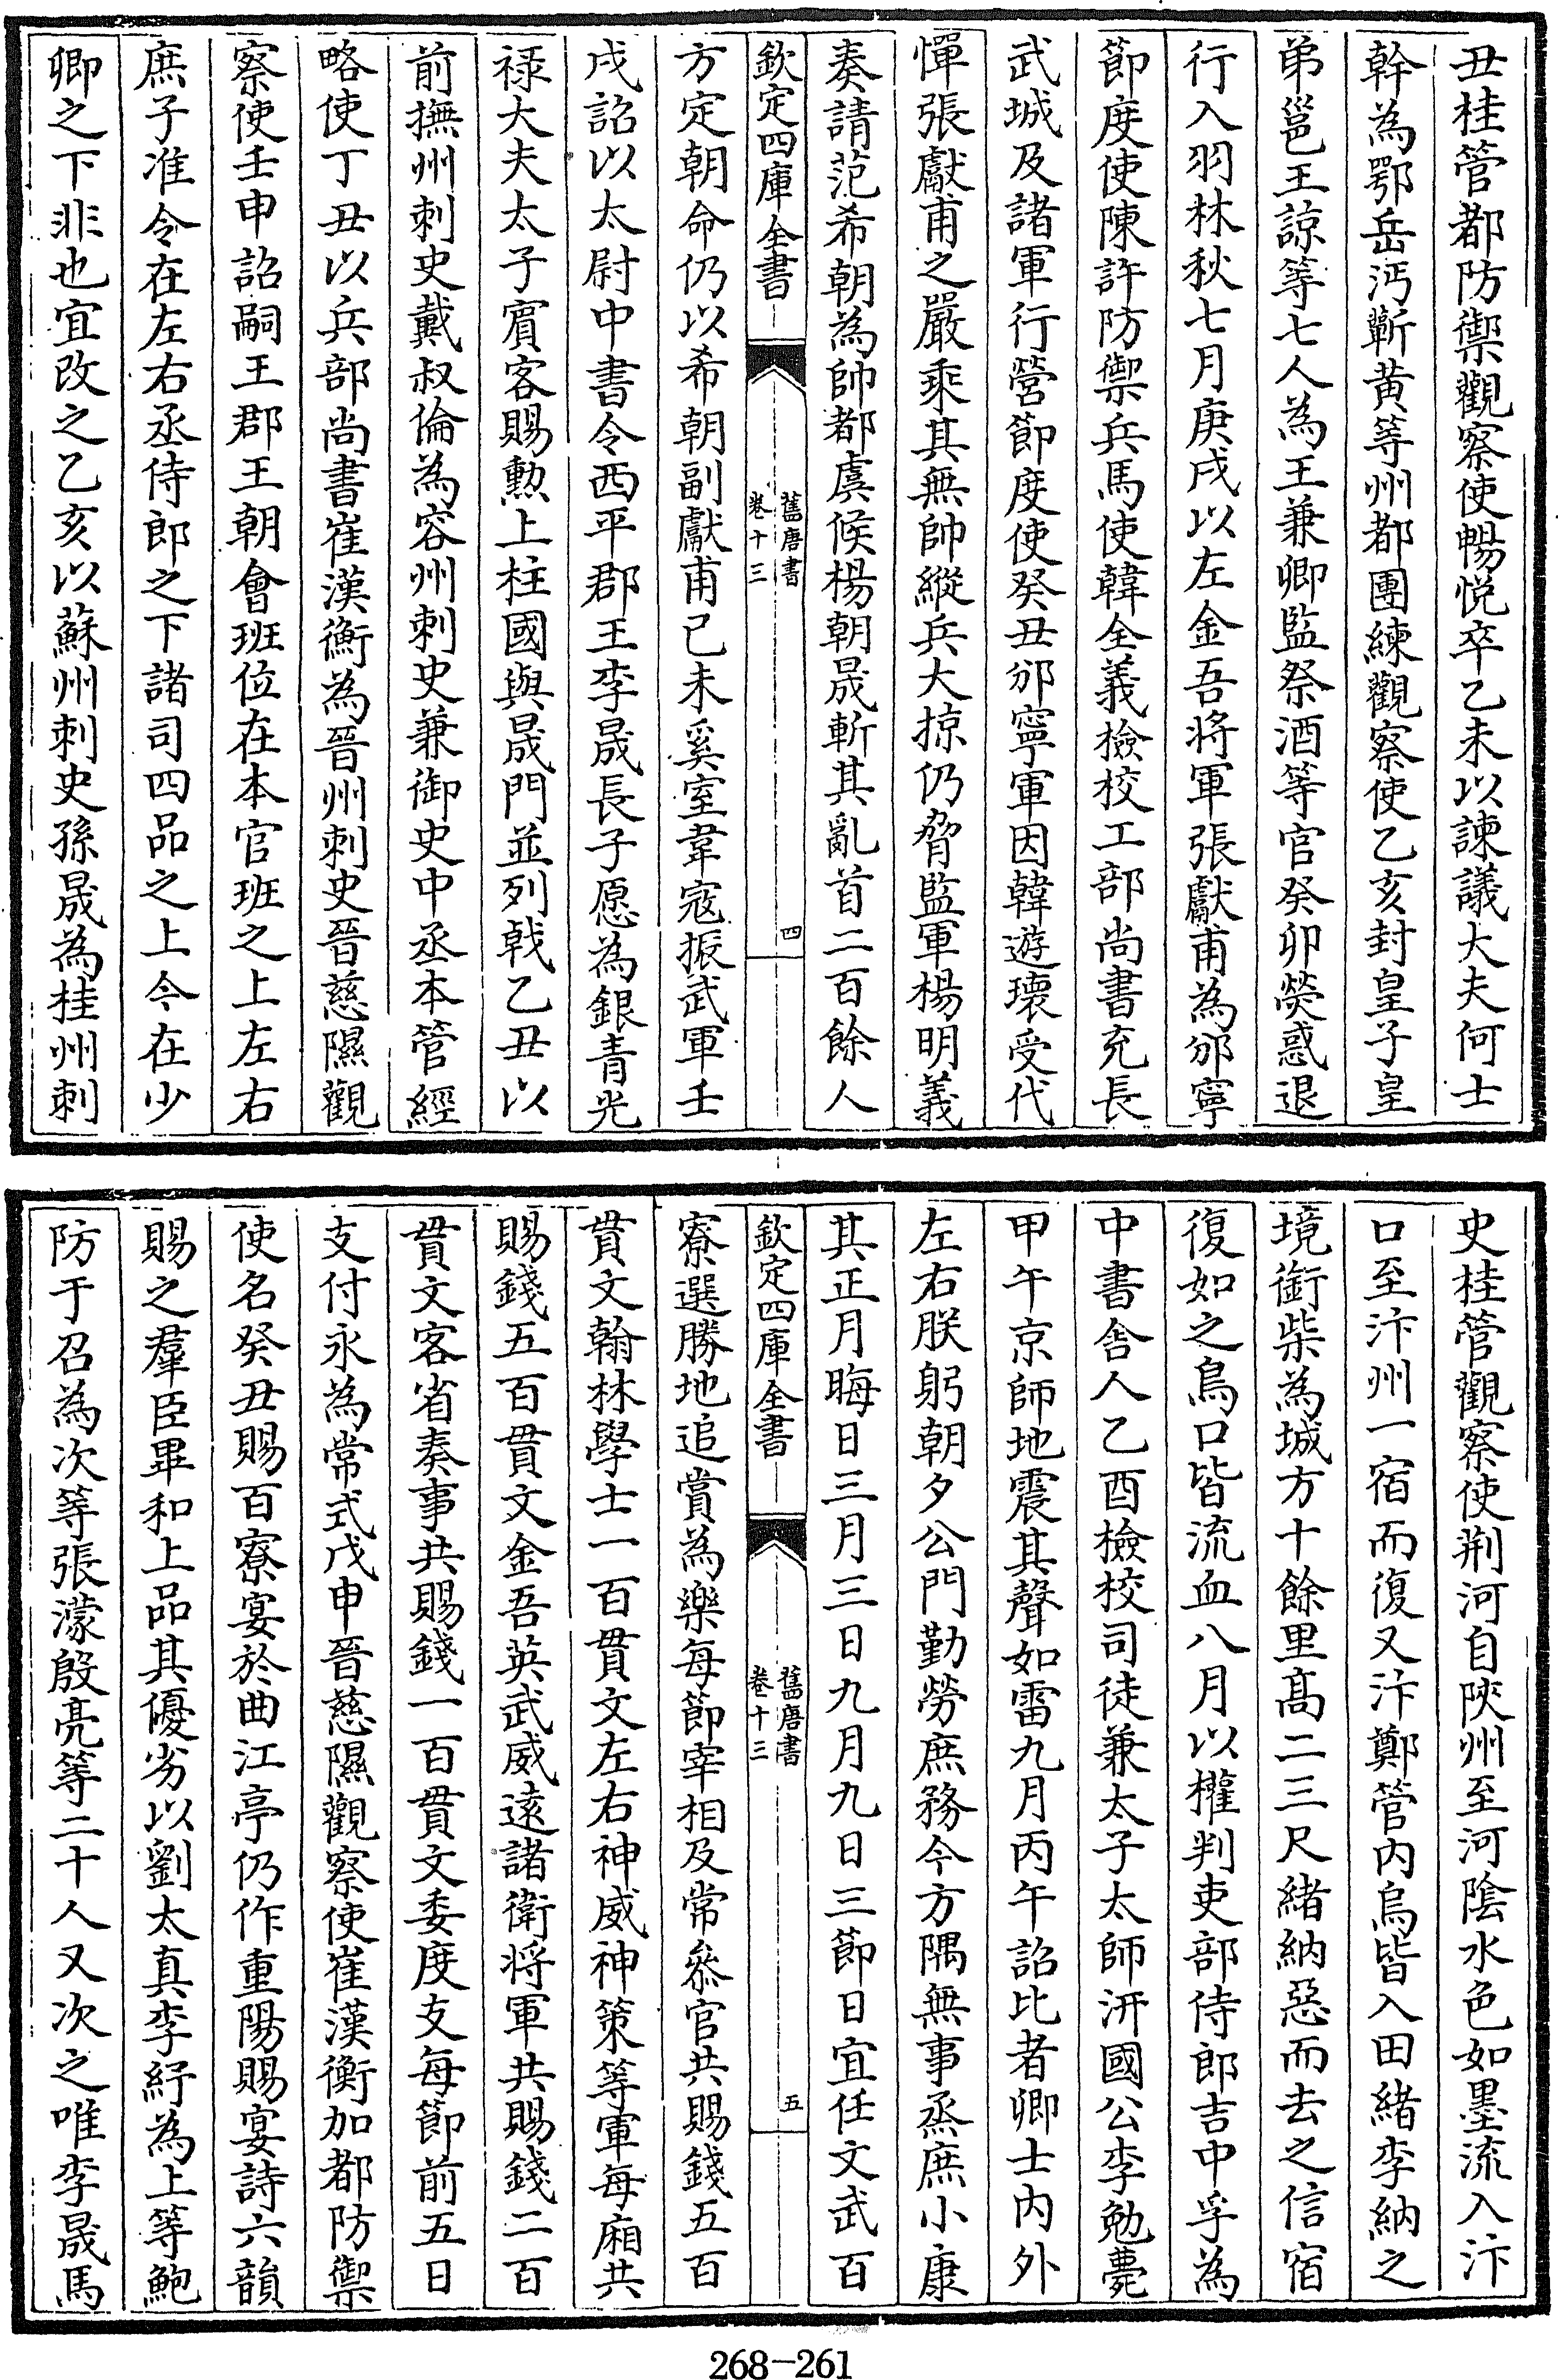 丑桂管都防禦觀察使暢悅卒乙未以諫議大夫何士
幹為鄂岳沔蘄黄等州都團練觀察使乙亥封皇子皇
弟邕王諒等七人為王兼卿監祭酒等官癸卯熒惑退
行入羽林秋七月庚戌以左金吾將軍張獻甫為邠寧
節度使陳許防禦兵馬使韓全義檢校工部尚書充長
武城及諸軍行營節度使癸丑邠寧軍因韓遊瓌受代
憚張獻甫之嚴乘其無帥縱兵大掠仍脅監軍楊明義
奏請范希朝為帥都虞候楊朝晟斬其亂首二百餘人
欽定四庫全書
舊唐書
卷十三
四
方定朝命仍以希朝副獻甫己未奚室韋寇振武軍壬
戌詔以太尉中書令西平郡王李晟長子愿為銀青光
禄大夫太子賓客賜勲上柱國與晟門並列戟乙丑以
前撫州刺史戴叔倫為容州刺史兼御史中丞本管經
略使丁丑以兵部尚書崔漢衡為晉州刺史晉慈隰觀
察使壬申詔嗣王郡王朝會班位在本官班之上左右
庶子准令在左右丞侍郎之下諸司四品之上今在少
卿之下非也宜改之乙亥以蘇州刺史孫晟為桂州刺
史桂管觀察使荆河自陝州至河陰水色如墨流入汴
口至汴州一宿而復又汴鄭管内烏皆入田緒李納之
境銜柴為城方十餘里髙二三尺緒納惡而去之信宿
復如之烏口皆流血八月以權判吏部侍郎吉中孚為
中書舎人乙酉檢校司徒兼太子太師汧國公李勉薨
甲午京師地震其聲如雷九月丙午詔比者卿士内外
左右朕躬朝夕公門勤勞庶務今方隅無事烝庶小康
其正月晦日三月三日九月九日三節日宜任文武百
欽定四庫全書
舊唐書
卷十三
五
寮選勝地追賞為樂每節宰相及常叅官共賜錢五百
貫文翰林學士一百貫文左右神威神策等軍每廂共
賜錢五百貫文金吾英武威逺諸衛將軍共賜錢二百
貫文客省奏事共賜錢一百貫文委度支每節前五日
支付永為常式戊申晉慈隰觀察使崔漢衡加都防禦
使名癸丑賜百寮宴於曲江亭仍作重陽賜宴詩六韻
賜之羣臣畢和上品其優劣以劉太真李紓為上等鮑
防于召為次等張濛殷亮等二十人又次之唯李晟馬
268-261